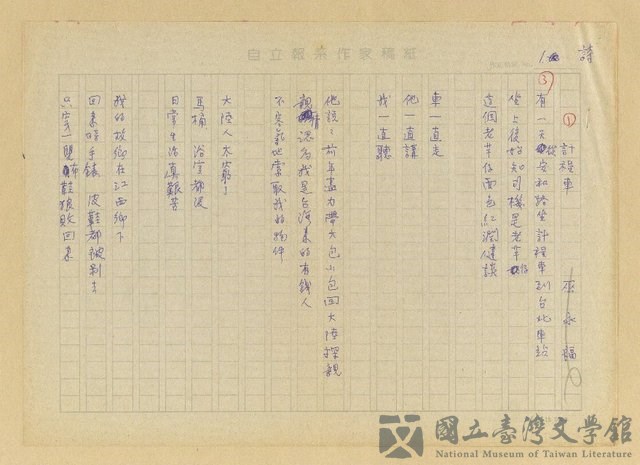 自立報系作家稿紙
詩
①
計程車
巫永福
③
有一天從安和路坐計程車到台北車站
坐上後始知司機是老芋仔
這個老芋仔面色紅潤健談
車一直走
他一直講
我一直聽
他說：前年盡力帶大包小包回大陸探親
親情認為我是台灣來的有錢人
不客氣地索取我的物件
大陸人太窮了
馬桶 浴室都沒
日常生活真艱苦
我的故鄉在江西鄉下
回來時手錶 皮鞋都被剝去
只穿一雙布鞋狼敗回來
國立臺灣文學館
National Museum of Taiwan Literature